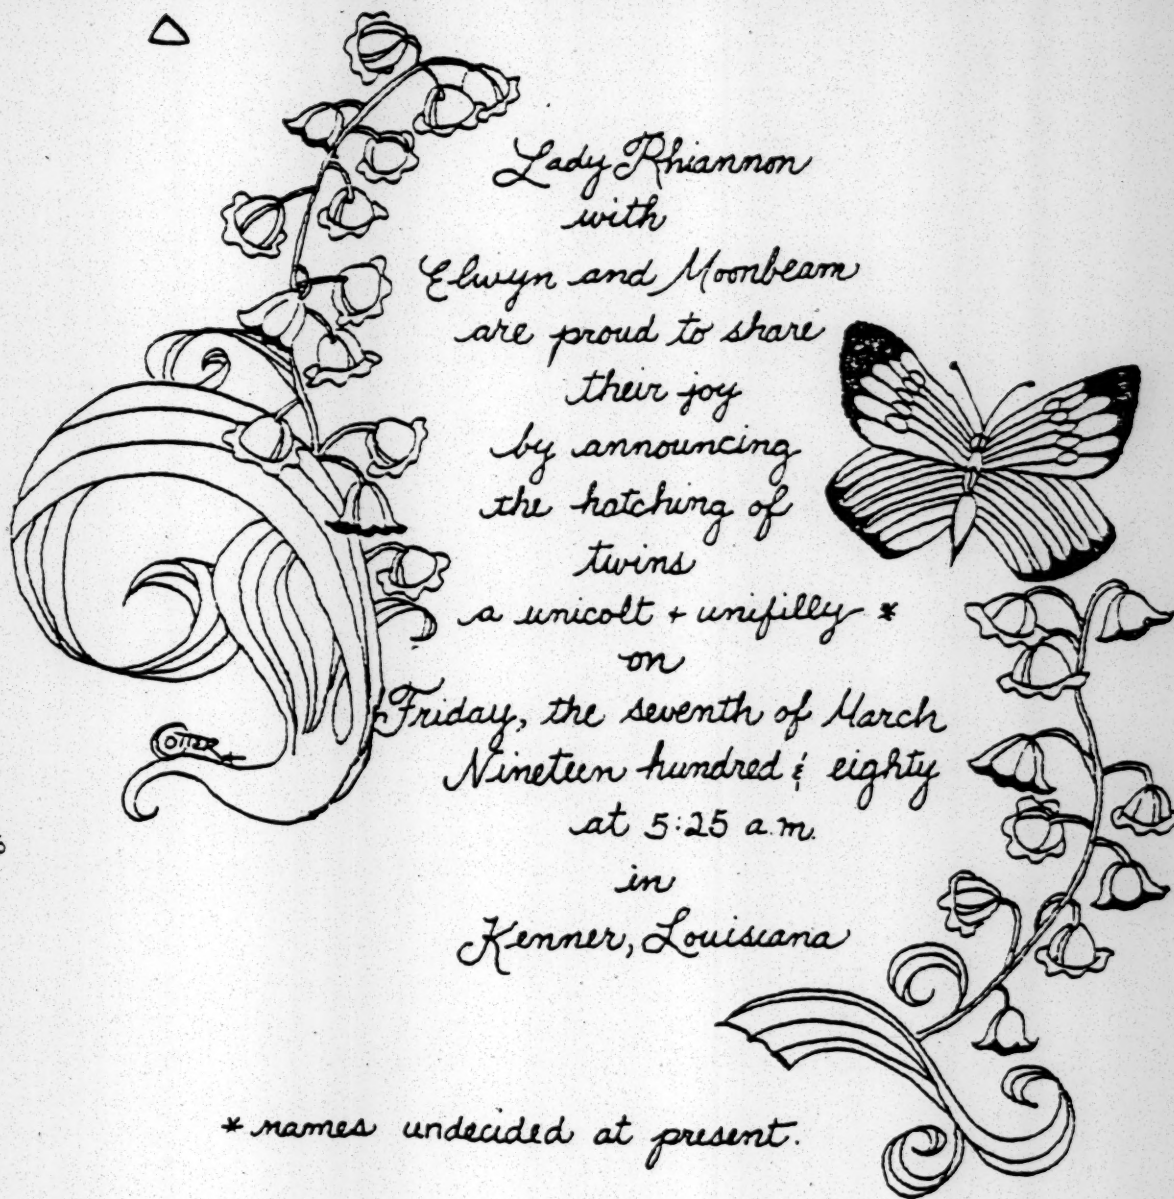 Lady Rhiannon
with
Elwyn and Moonbeam
are proud to share
their joy
by announcing
the hatching of
twins
a unicolt + unifilly *
on
Friday, the seventh of March
OTTER
Nineteen hundred & eighty
at 5:25 a.m.
in
Kenner, Louisiana
* names undecided at present.